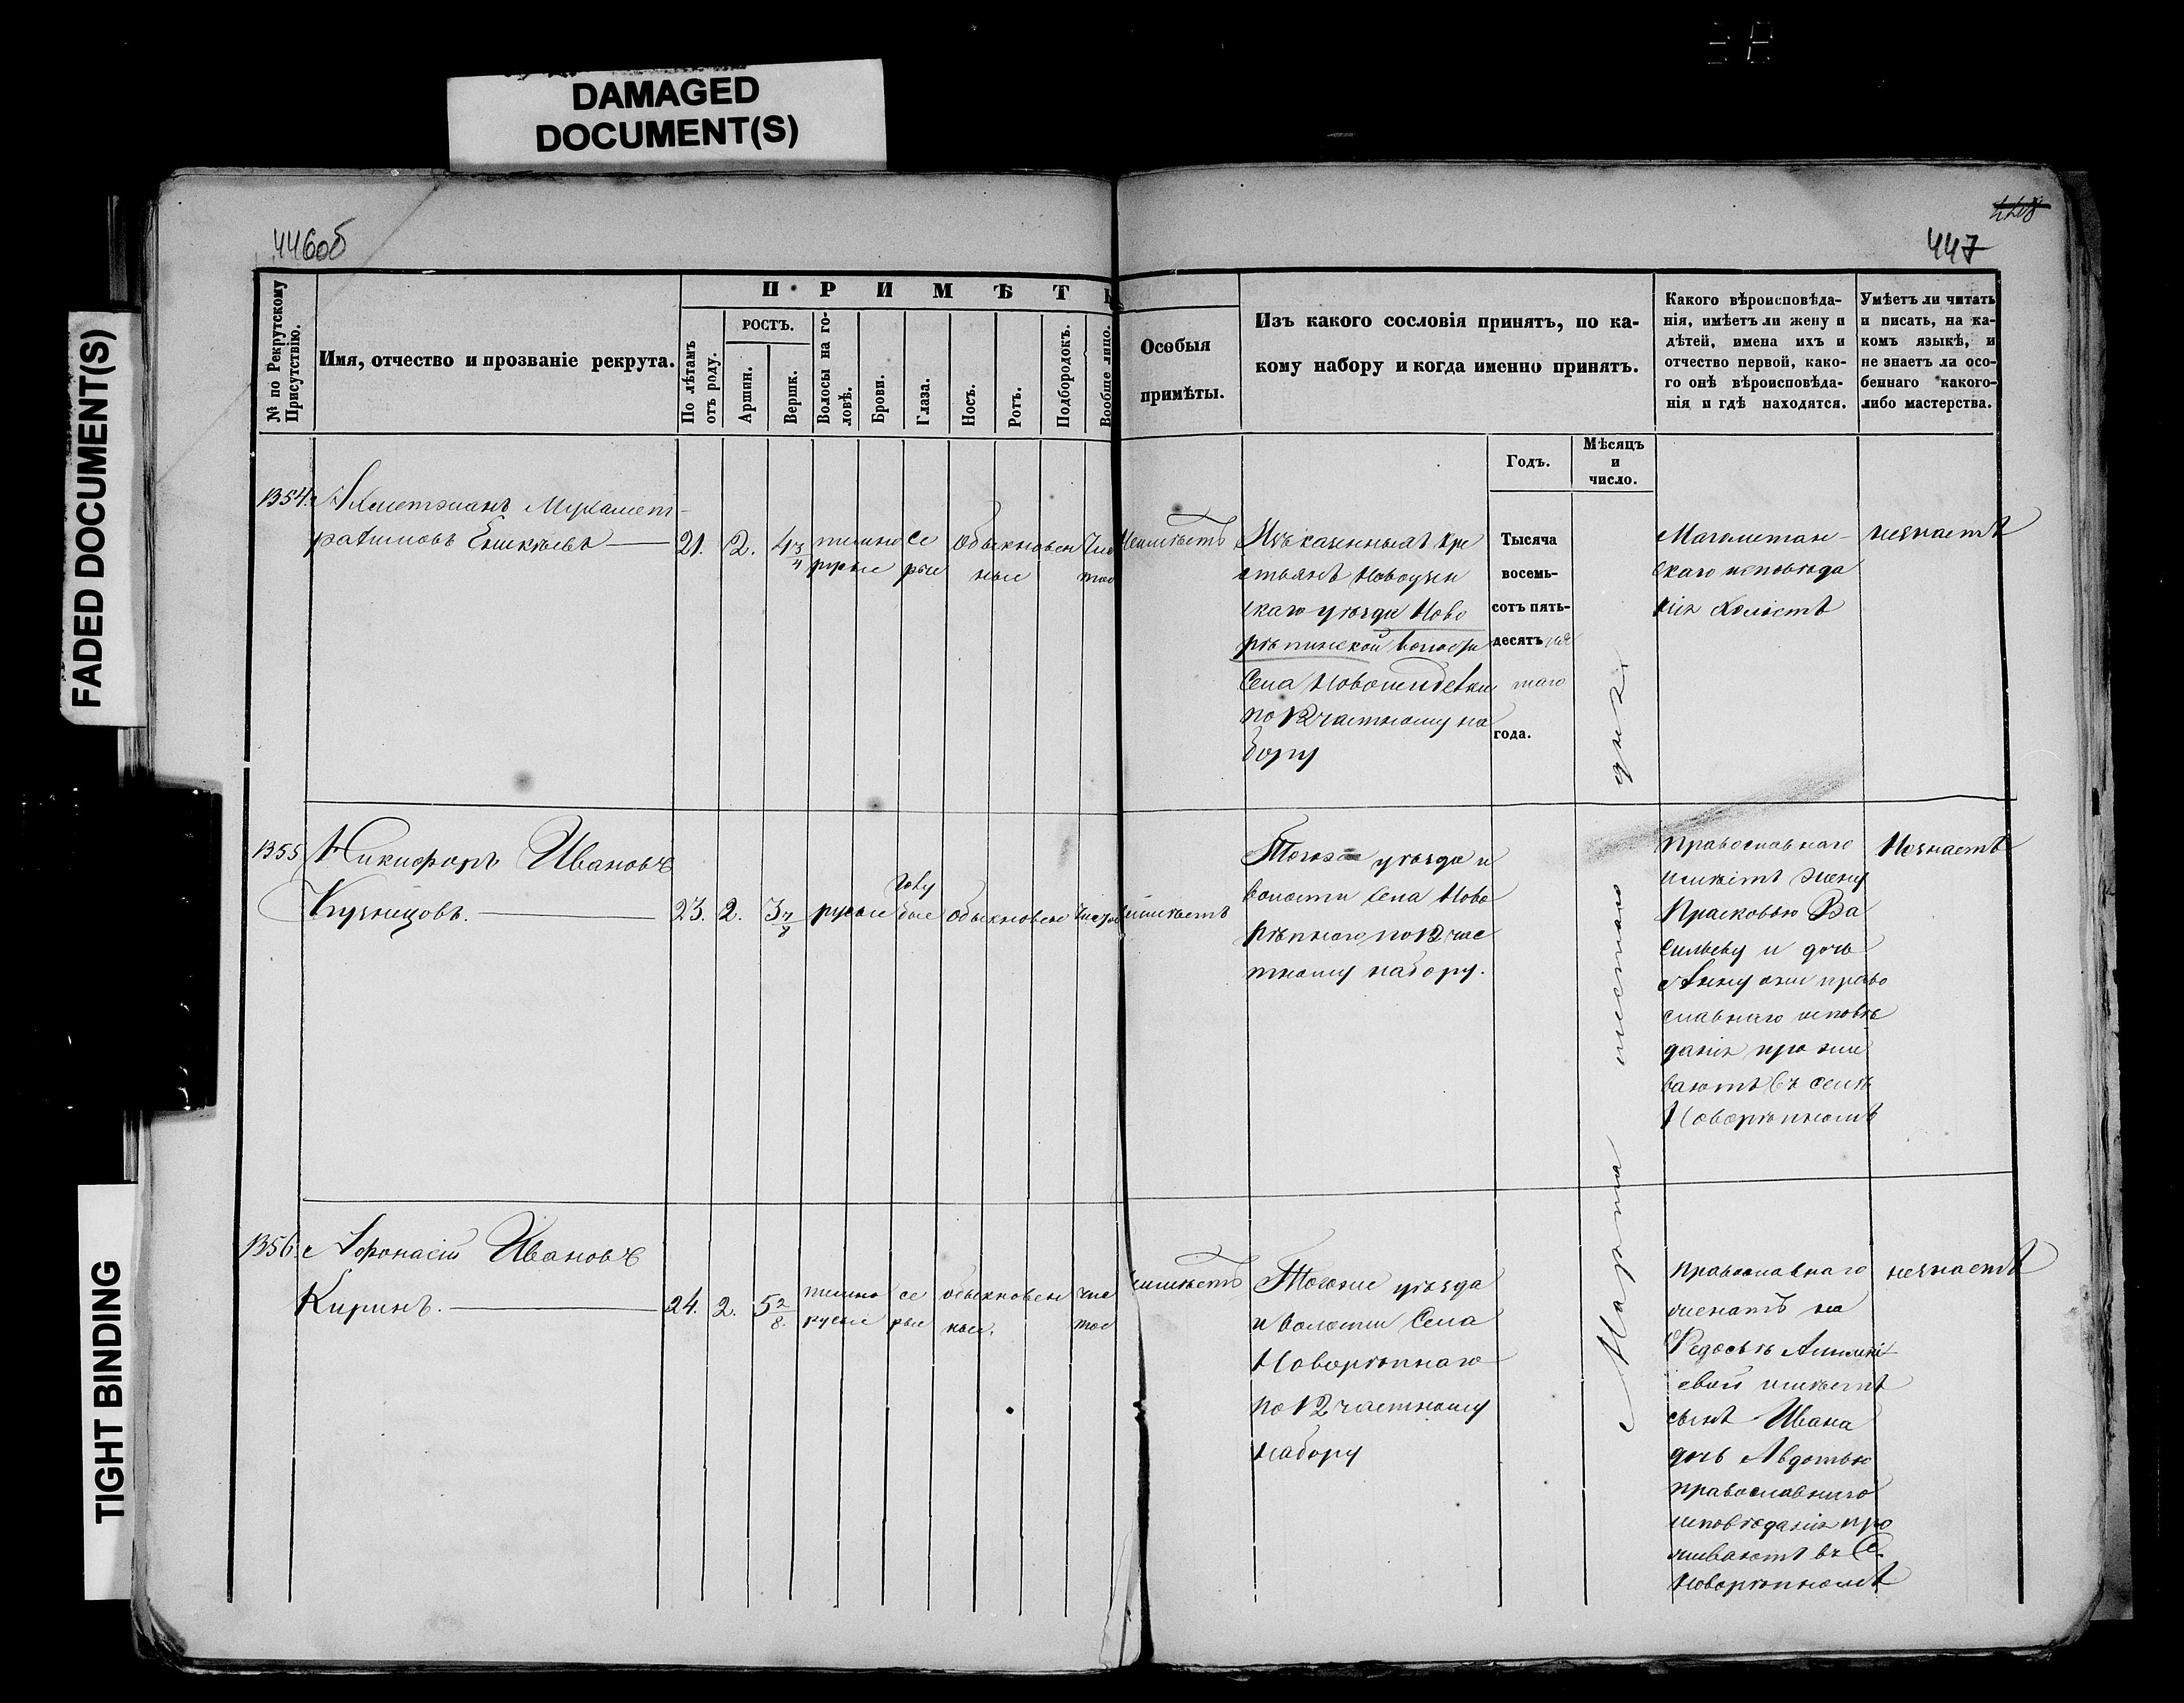 DAMAGED
DOCUMENT(S)
FADED DOCUMENT(S)
TIGHT BINDING
446об
448
447
№ по Рекрутскому
Присутствію.
Имя, отчество и прозваніе рекрута.
ПРИМѢТЫ
По лѣтамъ
отъ роду.
РОСТЪ.
Аршин.
Вершк.
Волосы на го-
ловѣ.
Брови.
Глаза.
Носъ.
Ротъ.
Подбородокъ.
Вообще лицо.
Особыя
примѣты.
Изъ какого сословія принятъ, по ка-
кому набору и когда именно принятъ.
Годъ.
Мѣсяцъ
и
число.
Какого вѣроисповѣда-
нія, имѣетъ ли жену и
дѣтей, имена ихъ и
отчество первой, како-
го онѣ вѣроисповѣда-
нія и гдѣ находятся.
Умѣетъ ли читать
и писать, на ка-
комъ языкѣ, и
не знаетъ ли осо-
беннаго какого-
либо мастерства.
1354.
Ахметжанъ Мухамет-
рахимовъ
21. 2. 4 3/4
темно
русые
се
рые
Обыкновен
ные
Чис
тое
Неимѣетъ
Изъ казенныхъ кре
стьянъ Новоузен
скаго уѣзда Ново
рѣпинской волости
Села
по 12 частному на
бору
Тысяча
восемь-
сотъ пять-
десятъ
таго
года.
Магометан-
скаго исповѣда
нія холостъ
незнаетъ
1355
Никифоръ Ивановъ
Кузнецовъ.
23. 2. 3 7/8
русые
голу
бые
обыкновен
чистое
неимѣетъ
Тогоже уѣзда и
волости села Ново
рѣпнаго по 12 час
тному набору.
Православнаго
имѣетъ жену
Прасковью Ва
сильеву и дочь
Анну они право
славнаго исповѣ
данія прожи
ваютъ въ селѣ
Новорѣпномъ
Незнаетъ
1356.
Афонасій Ивановъ
Киринъ.
24. 2. 5 2/8.
темно
русые
се
рые
обыкновен
ные.
чис
тое
неимѣетъ
Тогоже уѣзда
и волости Села
Новорѣпнаго
по 12 частному
набору
Марта шестаго дня
Православнаго
женатъ на
Федосьѣ
евой имѣетъ
сынъ Ивана
дочь Авдотью
православнаго
исповѣданія про
живаютъ въ С.
Новорѣпномъ
незнаетъ